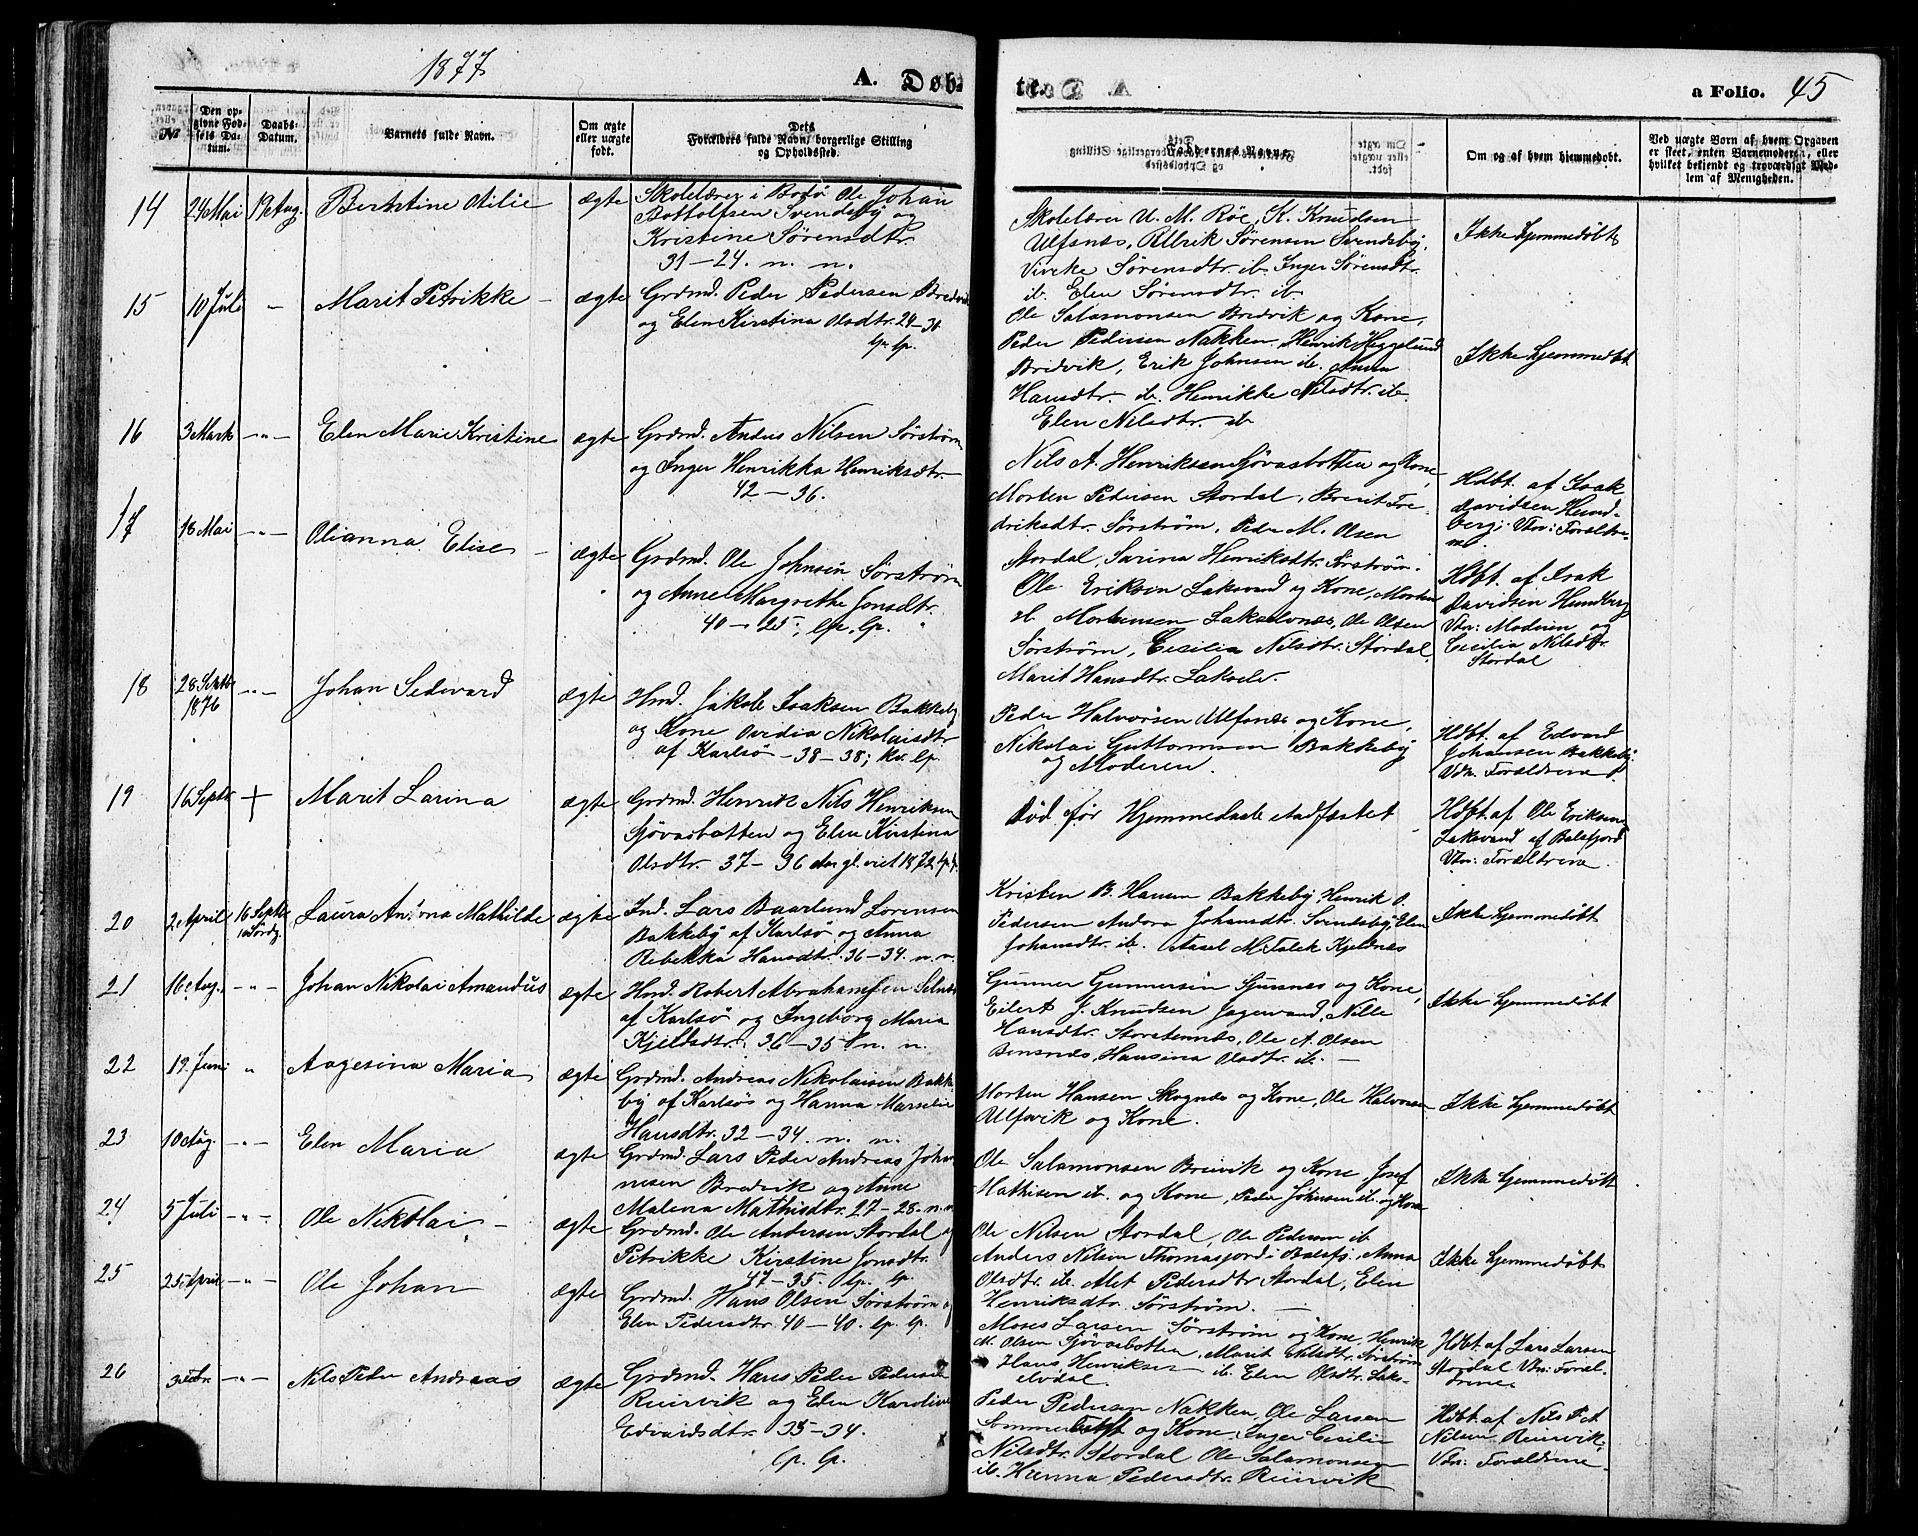 1877
A. Døb-
te.
a Folio. 45
№
Den opgivne Fødsels Datum.
Daabs-Datum.
Barnets fulde Navn.
Om ægte eller uægte født.
Dets Forældres fulde Navn, borgerlige Stilling og Opholdssted.
Faddernes Navne
Om og af hvem hjemmedøbt.
Ved uægte Børn af hvem Opgaven er skeet, enten Barnemoderen, eller hvilket bekjendt og troværdigt Medlem af Menigheden.
14 24 Mai 19 Aug. Berntine Otilie ægte Skolelærer i Bodø Ole Johan
Bottolfsen Svendsby og
Kristine Sørensdtr.
31–24. n. n.
Skolelærer U. M. Røe, K. Knudsen
Ulfsnæs, Ulrik Sørensen Svendsby,
Viveke Sørensdtr. ib. Inger Sørensdtr.
ib. Elen Sørensdtr. ib.
Ikke hjemmedøbt
15 10 Juli " Marit Petrikke – ægte Grdmd. Peder Pedersen Bredvik
og Elen Kirstina Olsdtr. 24–30
lp. lp.
Ole Salamonsen Bredvik og Kone,
Peder Pedersen Nakken, Henrik Heggelund
Bredvik, Erik Johnsen ib. Anna
Hansdtr. ib. Henrikke Nilsdtr. ib.
Elen Nilsdtr. ib
Ikke hjemmedøbt
16 3 Mark –"– Elen Marie Kristine ægte Grdmd. Anders Nilsen Sørstrøm
og Inger Henrikka Henriksdtr.
42–36.
Nils A. Henriksen Sjøvasbotten og Kone
Morten Pedersen Stordal, Berit Fre-
driksdtr. Sørstrøm, Peder M. Olsen
Stordal, Sarina Henriksdtr. Sørstrøm.
Hdbt. af Isak
Davidsen Hund-
berg; Vtn: Foreldre-
ne
17 18 Mai –"– Olianna Elise – ægte Grdmd. Ole Johnsen Sørstrøm
og Anne Margrethe Jonsdtr.
40–25; lp. lp.
Ole Eriksen Laksvand og Kone, Morten
H. Mortensen Lakselvnæs, Ole Olsen
Sørstrøm, Cecilia Nilsdtr. Stordal,
Marit Hansdtr. Lakselv
Hdbt. af Isak
Davidsen Hundberg
Vtn: Moderen og
Cecilia Nilsdtr.
Stordal
18 28 Septbr 1876 –"– Johan Sedevard ægte Hmd. Jakob Isaksen Bakkeby
og Kone Ovidia Nikolaisdtr.
af Karlsø – 38–38; kv. lp.
Peder Halvorsen Ulfsnæs og Kone,
Nikolai Guttormsen Bakkeby
og Moderen.
Hdbt. af Edvard
Johansen Bakkeby.
Vdn. Forældrene
19 16 Septbr + Marit Larina ægte Grdmd. Henrik Nils Henriksen
Sjøvasbotten og Elen Kirstina
Olsdtr. 37–36 viet 1872 lp.
Død før Hjemmedaab stadfæstet
Hdbt. af Ole Eriksen
Laksvand af Balsfjord
Vtn: Forældrene.
20 2 April 16 Septbr Laura Anona Mathilde ægte Ind. Lars Baarlund Lorensen
Bakkeby af Karlsø og Anna
Rebekka Hansdtr. 36–34. n. n.
Kristen B. Hansen Bakkeby, Henrik O.
Pedersen Andora Johansdtr. Svendsby, Elen
Johansdtr. ib. Aasel M. Falck Kjeldnæs
Ikke hjemmedøbt
21 16 Aug. –"– Johan Nikolai Amandus ægte Hmd. Robert Abrahamsen Selnæs
af Karlsø og Ingeborg Maria
Kjeldsdtr. 36–35 n. n.
Gunner Gunnersen Sjursnæs og Kone,
Eilert J. Knudsen Jægervand, Nille
Hansdtr. Storstennæs, Ole A. Olsen
Bensnæs, Hansina Olsdtr. ib. –
Ikke hjemmedøbt
22 19 Juni " Aagesina Maria ægte Grdmd. Andreas Nikolaisen Bakke-
by af Karlsøs og Hanna Marselie
Hansdtr. 32–34. n. n.
Morten Hansen Skognæs og Kone, Ole Halvorsen
Ulfsvik og Kone.
Ikke hjemmedøbt
23 10 Aug. –"– Elen Maria ægte Grdmd. Lars Peder Andreas Johan-
nesen Bredvik og Anne
Malena Mathisdtr. 27–28. n. n
Ole Salamonsen Breivik og Kone Josef
Mathisen ib. og Kone, Peder Johnsen ib. og Kone
Ikke hjemmedøbt
24 5 Juli –"– Ole Nikolai – ægte Grdmd. Ole Andersen Stordal og
Petrikke Kirstine Jonsdtr.
47–35 lp. lp.
Ole Nilsen Stordal, Ole Pedersen ib
Anders Nilsen Thomasjord i Balsfj. Anna
Olsdtr. ib. Alet Pedersdtr Stordal, Elen
Henriksdtr. Sørstrøm. –
Ikke hjemmedøbt
25 25 April –"– Ole Johan ægte Grdmd. Hans Olsen Sørstrøm og
Elen Pedersdtr. 40–40. lp. lp.
Moses Larsen Sørstrøm og Kone, Henrik
M. Olsen Sjøvasbotten, Marit Nilsdtr. Sørstrøm
Hans Henriksen ib. Elen Olsdtr. Laks-
elvdal.
Hdbt. af Lars Larsen
Stordal Vtn: Foræl-
drene
26 3 Febr. –"– Nils Peder Andreas ægte Grdmd. Hans Peder Pedersen
Reinvik og Elen Karoline
Edvardsdtr. 35–34.
lp. lp.
Peder Pedersen Nakken, Ole Larsen
Sommersæt og Kone, Inger Cecilie
Nilsdtr. Stordal Ole Salamonsen
ib. Hanna Pedersdtr. Reinvik
Hdbt. af Nils P. A
Nilsen Reinvik
Vtn: Forældrene.